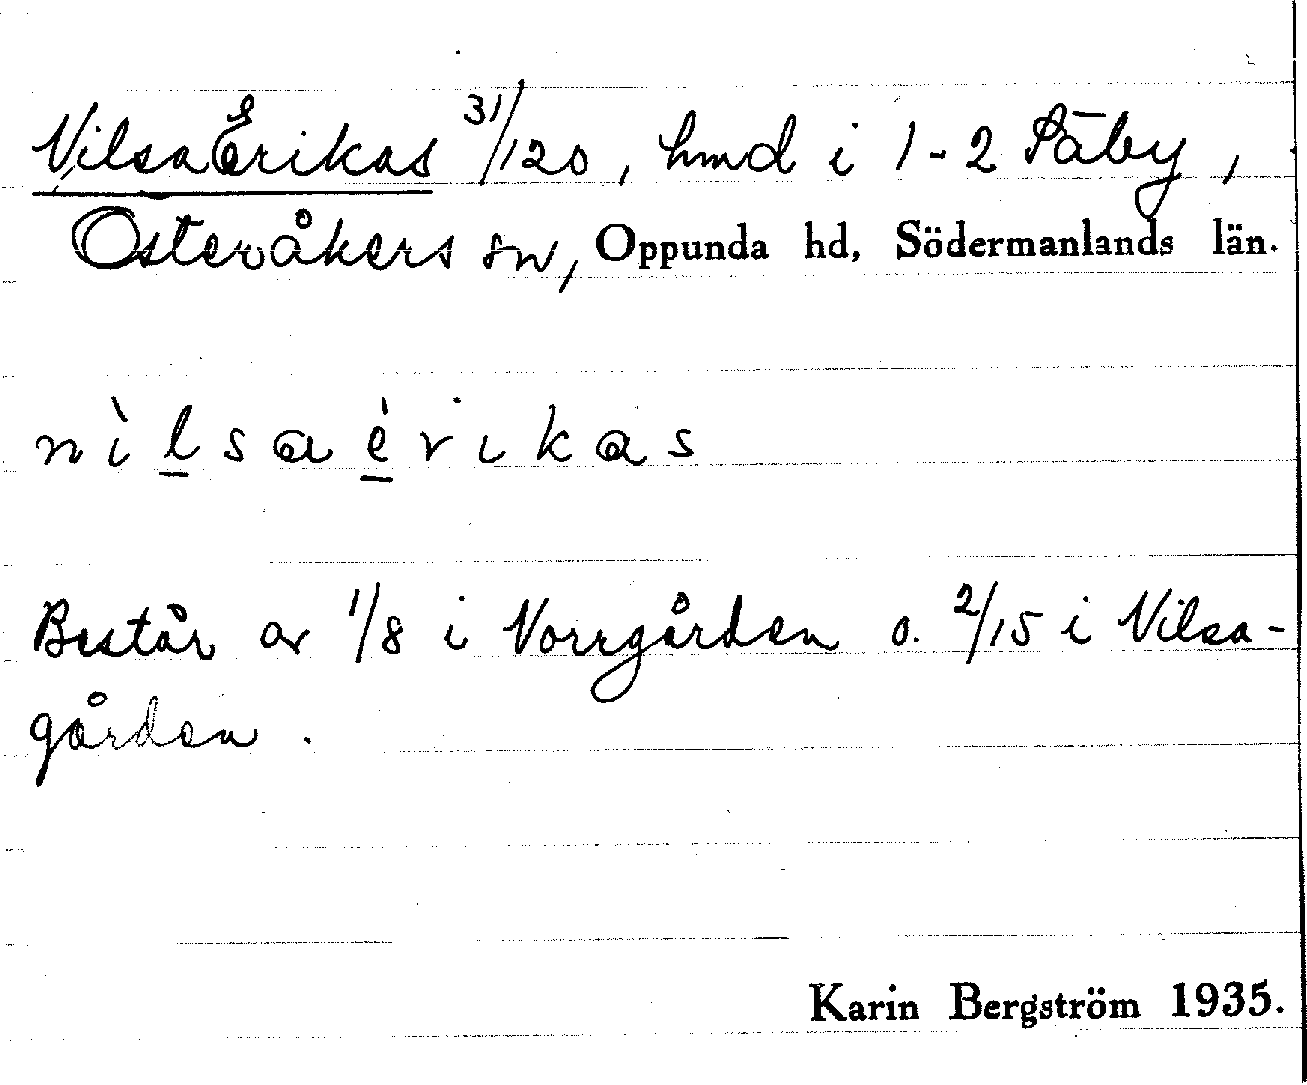 NilsaErikas 31/120, hmd i 1-2 Säby,
Österåkers sn, Oppunda hd, Södermanlands län.
nìlsaèrikas
Består av 1/8 i Norrgården o. 2/15 i Nilsa-
gården.
Karin Bergström 1935.